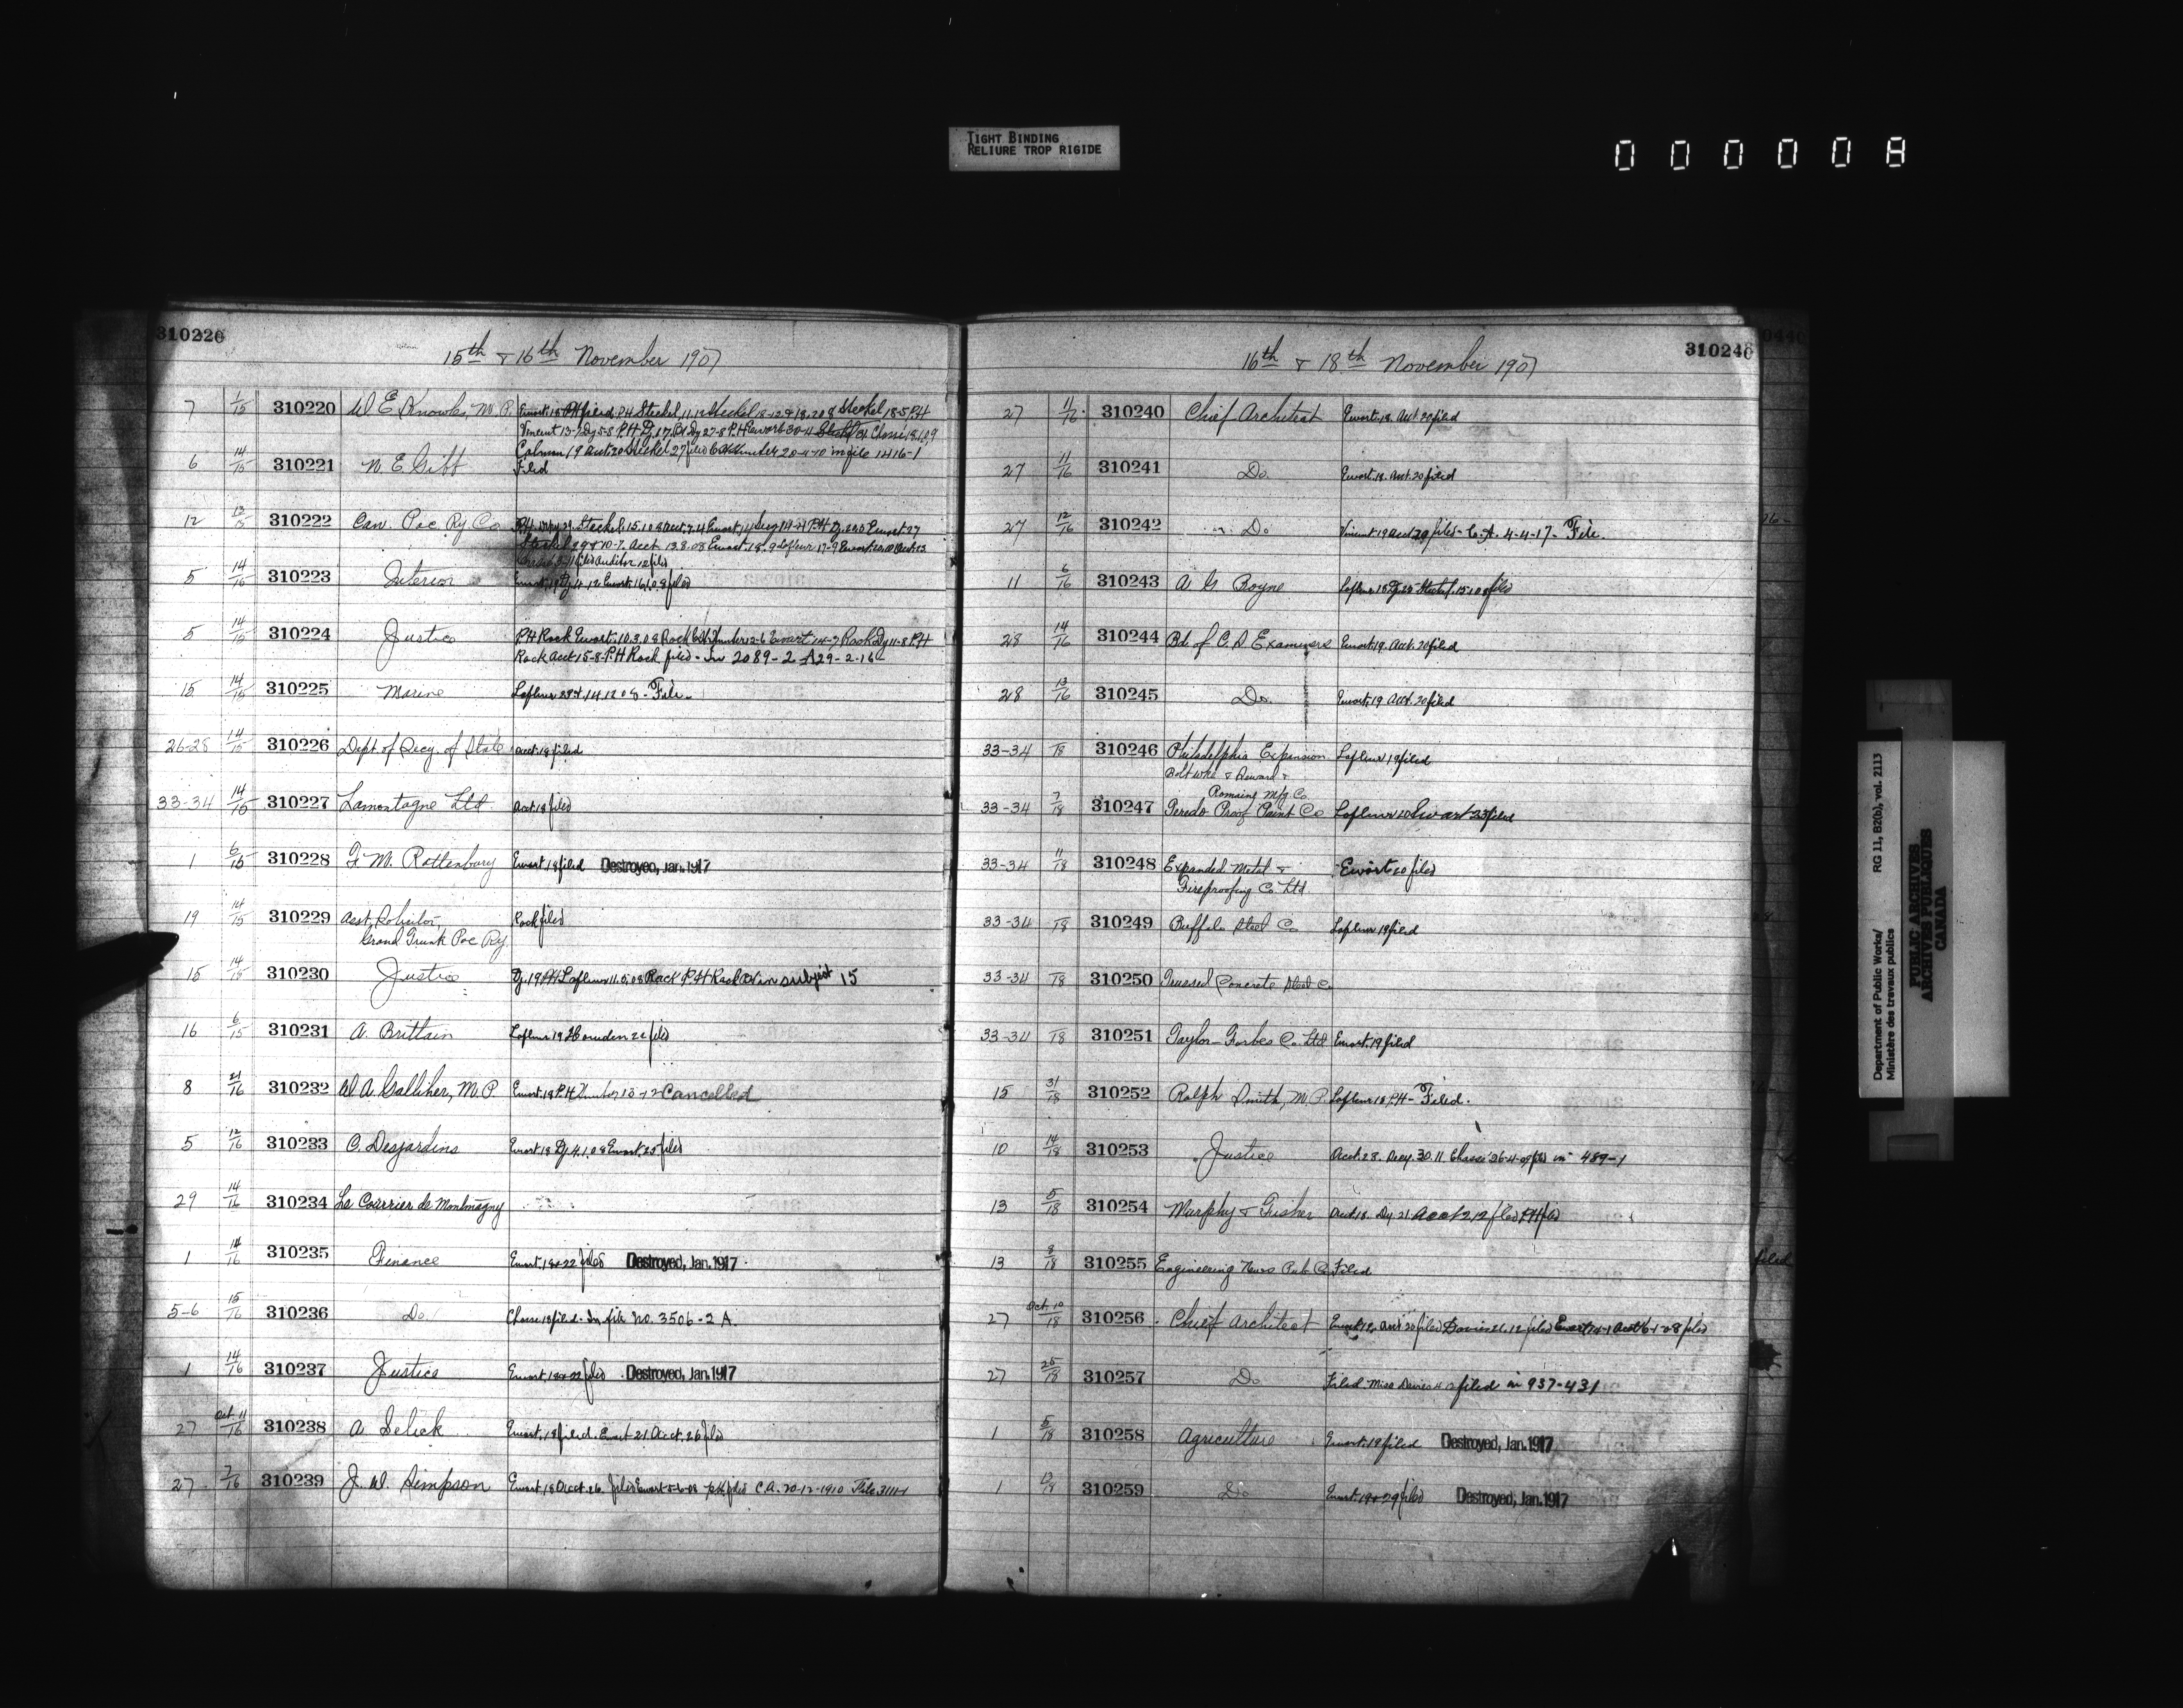 TIGHT BINDING
RELIURE TROP RIGIDE
000008
310220
15th & 16th November 1907
7 1/15 310220 W E Knowles, M.P. Ewart 18 filed P.H Steckel 11.12 Steckel 18-5 P.H
6 14/15 310221 N. E. Gibb Filed
12 13/15 310222 Can. Pac. Ry. Co
5 14/15 310223 Interior
5 14/15 310224 Justice P.H Rock Ewart. 10.3.08 Rock Hunter 12-6 Ewart 14-7 Rock Dy 11-8 P.H
Rock acct 15-8-P.H Rock filed - In 2089-2 A 29-2-16
15 14/15 310225 Marine Lafleur 14.12.08 - File
26-28 14/15 310226 Dept of Secy. of State acct. 18 filed
33-34 14/15 310227 Lamontagne Ltd. acct. 18 filed
1 6/15 310228 F. M. Rattenbury Ewart 18 filed Destroyed, Jan. 1917
19 14/15 310229 Asst. Solicitor, Rock filed
Grand Trunk Pac Ry.
15 14/15 310230 Justice Dy. 19 P.H Lafleur 11.5.08 Rock P.H Rock in subject 15
16 6/15 310231 A. Brittain Lafleur 19 Howden 22 filed
8 21/16 310232 W A Galliher, M.P. Ewart. 18 P.H Hunter 13-12 Cancelled
5 12/16 310233 C. Desjardins Ewart 18 Dy. 4.1.08 Ewart. 25 filed
29 14/16 310234 Le Courrier de Montmagny
1 14/16 310235 Finance Ewart. 18 & 22 filed Destroyed, Jan. 1917
5-6 15/16 310236 Do. Chasse 18 filed - In file No. 3506-2 A.
1 14/16 310237 Justice Ewart. 18 & 22 filed Destroyed, Jan. 1917
27 Oct. 11/16 310238 A. Selick Ewart. 18 filed. Ewart 21. Acct. 26 filed
27 7/16 310239 J. W. Simpson Ewart, 18 Acct. 26 filed Ewart P.H. filed C.A. 20-12-1910 File 3111-1
310240
16th & 18th November 1907
27 11/16 310240 Chief Architect Ewart. 18. Acct. 20 filed
27 11/16 310241 Do. Ewart. 18. Acct. 20 filed
27 12/16 310242 Do Vincent. 19 acct 20 filed - C.A. 4-4-17- File.
11 6/16 310243 A G Boyne Lafleur 18 Dy. 28 Steckel. 15.1.08 filed
28 14/16 310244 Bd. of C. S Examiners Ewart. 19. Acct. 20 filed
28 13/16 310245 Do. Ewart. 19 Acct. 20 filed
33-34 /18 310246 Philadelphia Expansion Lafleur 19 filed
Bolt Wks & Steward &
Romaine Mfg. Co
33-34 7/18 310247 Teredo Proof Paint Co Lafleur 20 Ewart 23 filed
33-34 11/18 310248 Expanded Metal & Ewart 20 filed
Fireproofing Co. Ltd
33-34 /18 310249 Buffalo Steel Co Lafleur 19 filed
33-34 /18 310250 Trussed Concrete Steel Co.
33-34 /18 310251 Taylor-Forbes Co. Ltd Ewart. 19 filed
15 31/18 310252 Ralph Smith, M.P. Lafleur 18 P.H - Filed.
10 14/18 310253 Justice Acct. 23. Secy. 30.11 Chasse 26-4-09 filed in 489-1
13 5/18 310254 Murphy & Fisher Acct 18. Dy. 21. Acct 2.12 filed P.H filed
13 8/18 310255 Engineering News Pub Co Filed
27 Oct. 10/18 310256 Chief Architect Ewart 18, acct 20 filed Davies 21.12 filed Ewart 14-1 Acct 6-1-08 filed
27 25/18 310257 Do Filed Miss Davies filed in 937-431
1 5/18 310258 Agriculture Ewart. 19 filed Destroyed, Jan. 1917
1 310259 Do Ewart. 19 & 29 filed Destroyed, Jan. 1917
filed
Department of Public Works/ RG 11, B2(b), vol. 2113
Ministère des travaux publics
PUBLIC ARCHIVES
ARCHIVES PUBLIQUES
CANADA